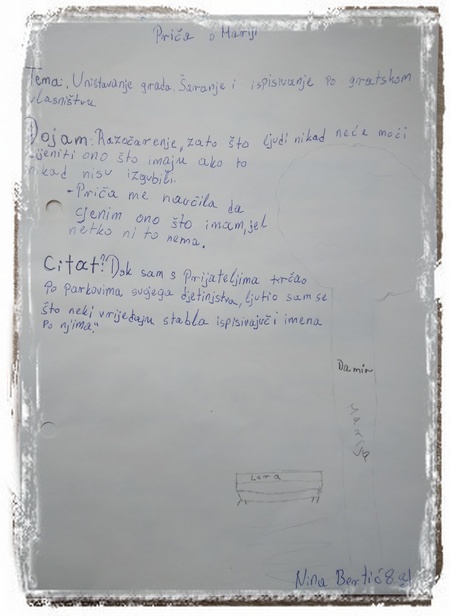 Priča o Mariji
Tema: Uništavanje grada. Šaranje i ispisivanje po gratskom
vlasništvu
Dojam: Razočarenje, zato što ljudi nikad neće moći
cjeniti ono što imaju ako to
nikad nisu izgubili.
- Priča me naučila da
cjenim ono što imam, jel
netko ni to nema.
Citat: "Dok sam s prijateljima trčao
po parkovima svojega djetinjstva, ljutio sam se
što neki vrijeđaju stabla ispisivajući imena
po njima."
Damir
Marija
Lara
Nina Bertić 8.a